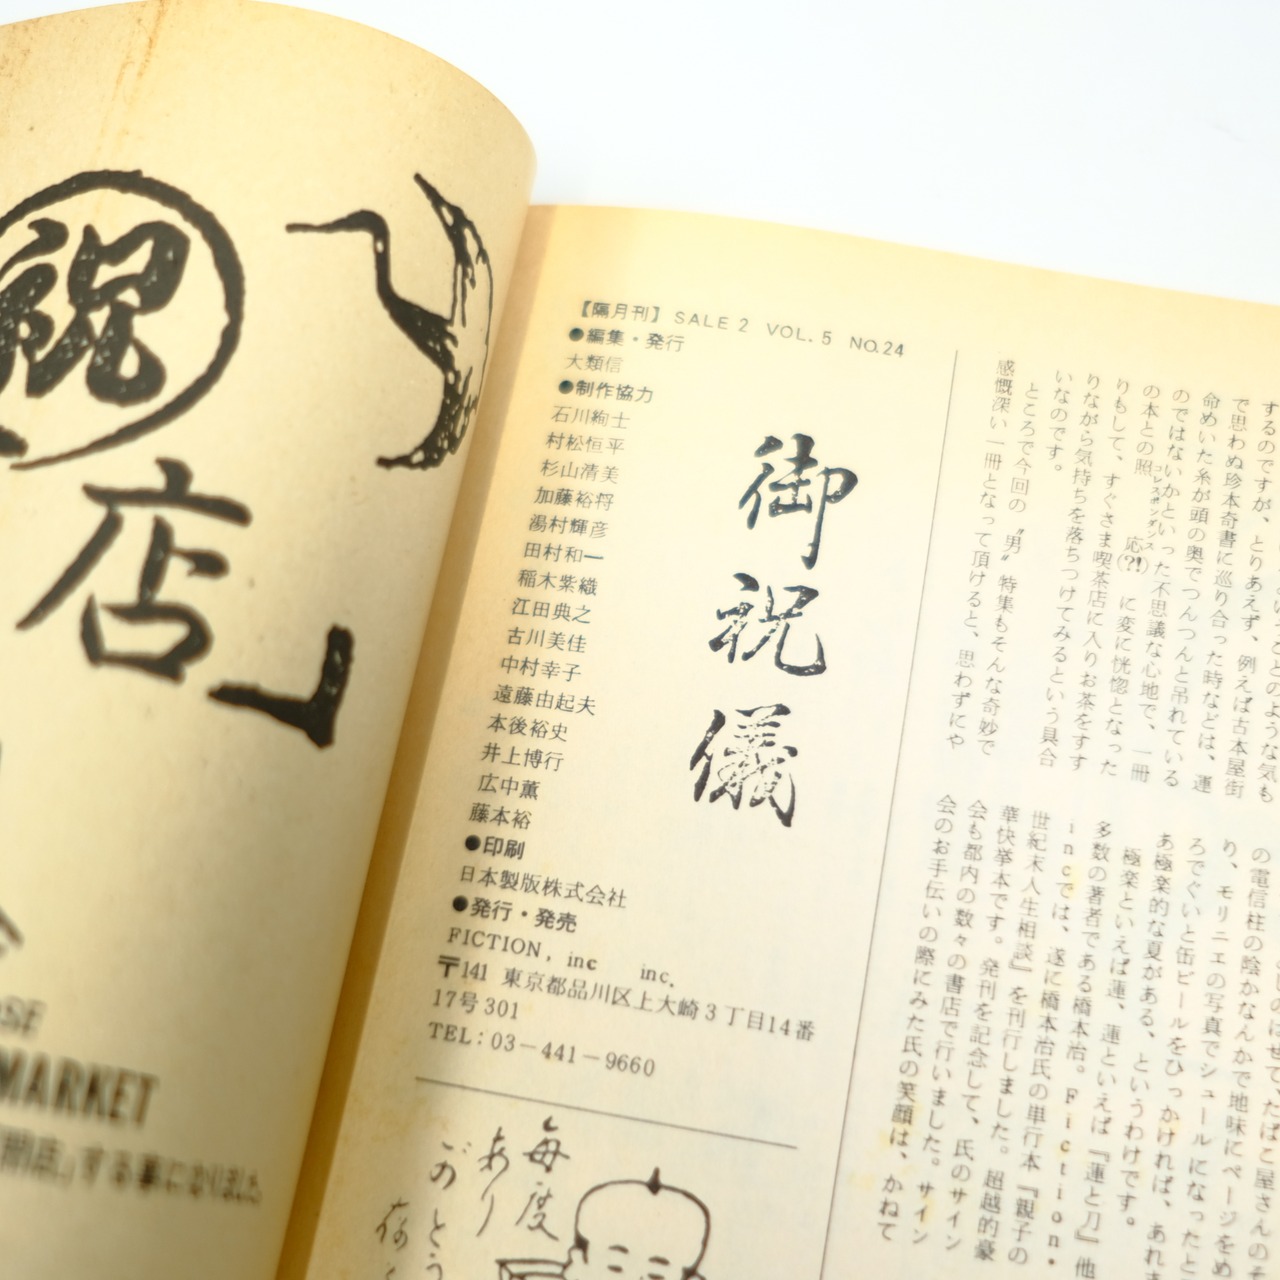 祝
店」
MARKET
「開店」する事になりました
【隔月刊】SALE 2 VOL. 5 NO.24
●編集・発行
大類信
●制作協力
石川絢士
村松恒平
杉山清美
加藤裕将
湯村輝彦
田村和一
稲木紫織
江田典之
古川美佳
中村幸子
遠藤由起夫
本後裕史
井上博行
広中薫
藤本裕
●印刷
日本製版株式会社
●発行・発売
FICTION, inc inc.
〒141 東京都品川区上大崎3丁目14番
17号301
TEL:03-441-9660
御祝儀
毎度
あり
ごのとう
するのですが、とりあえず、例えば古本屋街
で思わぬ珍本奇書に巡り合った時などは、運
命めいた糸が頭の奥でつんつんと吊れている
のではないかといった不思議な心地で、一冊
の本との照応(?!)に変に恍惚となった
コレスポンダンス
りもして、すぐさま喫茶店に入りお茶をすす
りながら気持ちを落ちつけてみるという具合
いなのです。
ところで今回の〝男〟特集もそんな奇妙で
感慨深い一冊となって頂けると、思わずにや
の電信柱の陰かなんかで地味にページをめ
り、モリニエの写真でシュールになったと
ろでぐいと缶ビールをひっかければ、あれま
あ極楽的な夏がある、というわけです。
極楽といえば蓮、蓮といえば『蓮と刀』他
多数の著者である橋本治。Fiction.
incでは、遂に橋本治氏の単行本『親子の
世紀末人生相談』を刊行しました。超越的豪
華快挙本です。発刊を記念して、氏のサイン
会も都内の数々の書店で行いました。サイン
会のお手伝いの際にみた氏の笑顔は、かねて